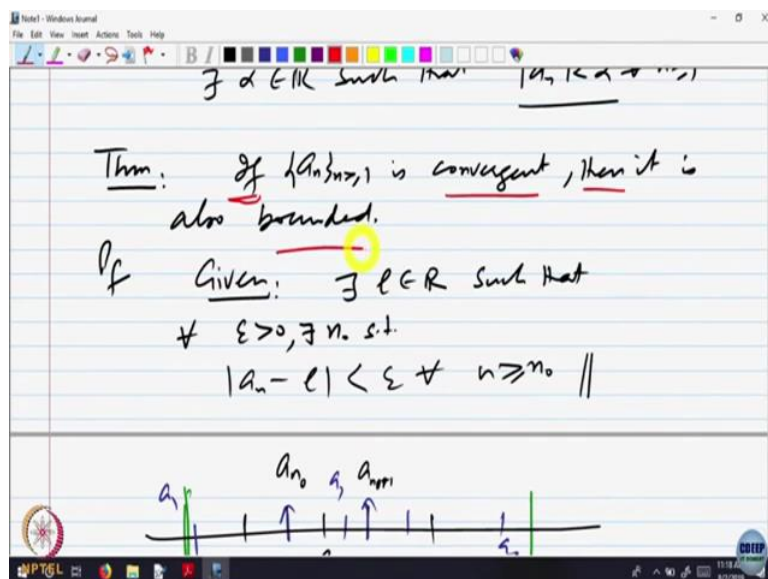 Note1 - Windows Journal
File Edit View Insert Actions Tools Help
B I
∃ α ∈ ℝ such that |aₙ| < α ∀ n≥1
Thm: If {aₙ}n≥1 is convergent, then it is
also bounded.
Pf Given: ∃ l ∈ R such that
∀ ε>0, ∃ n₀ s.t.
|aₙ - l| < ε ∀ n ≥ n₀ ||
a₁ aₙ₀ aₙ₀₊₁
NPTEL
CDEEP
IIT BOMBAY
11:18 A